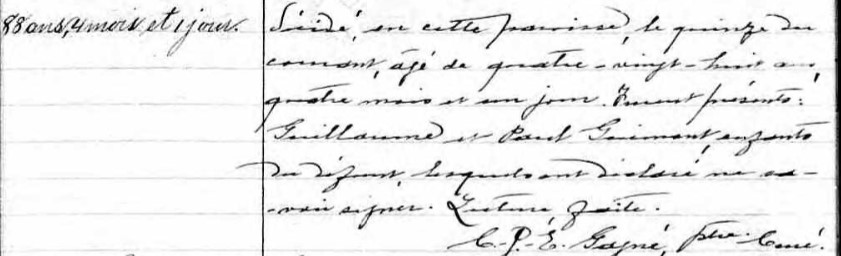 88 ans, 4 mois et 1 jour.
Décédé, en cette paroisse, le quinze du
courant, âgé de quatre-vingt-huit ans,
quatre mois et un jour. Furent présents:
Guillaume et Paul Guimont, enfants
du défunt, lesquels ont déclaré ne sa-
-voir signer. Lecture faite.
C.-P.-E. Gagné, ptre. Curé.